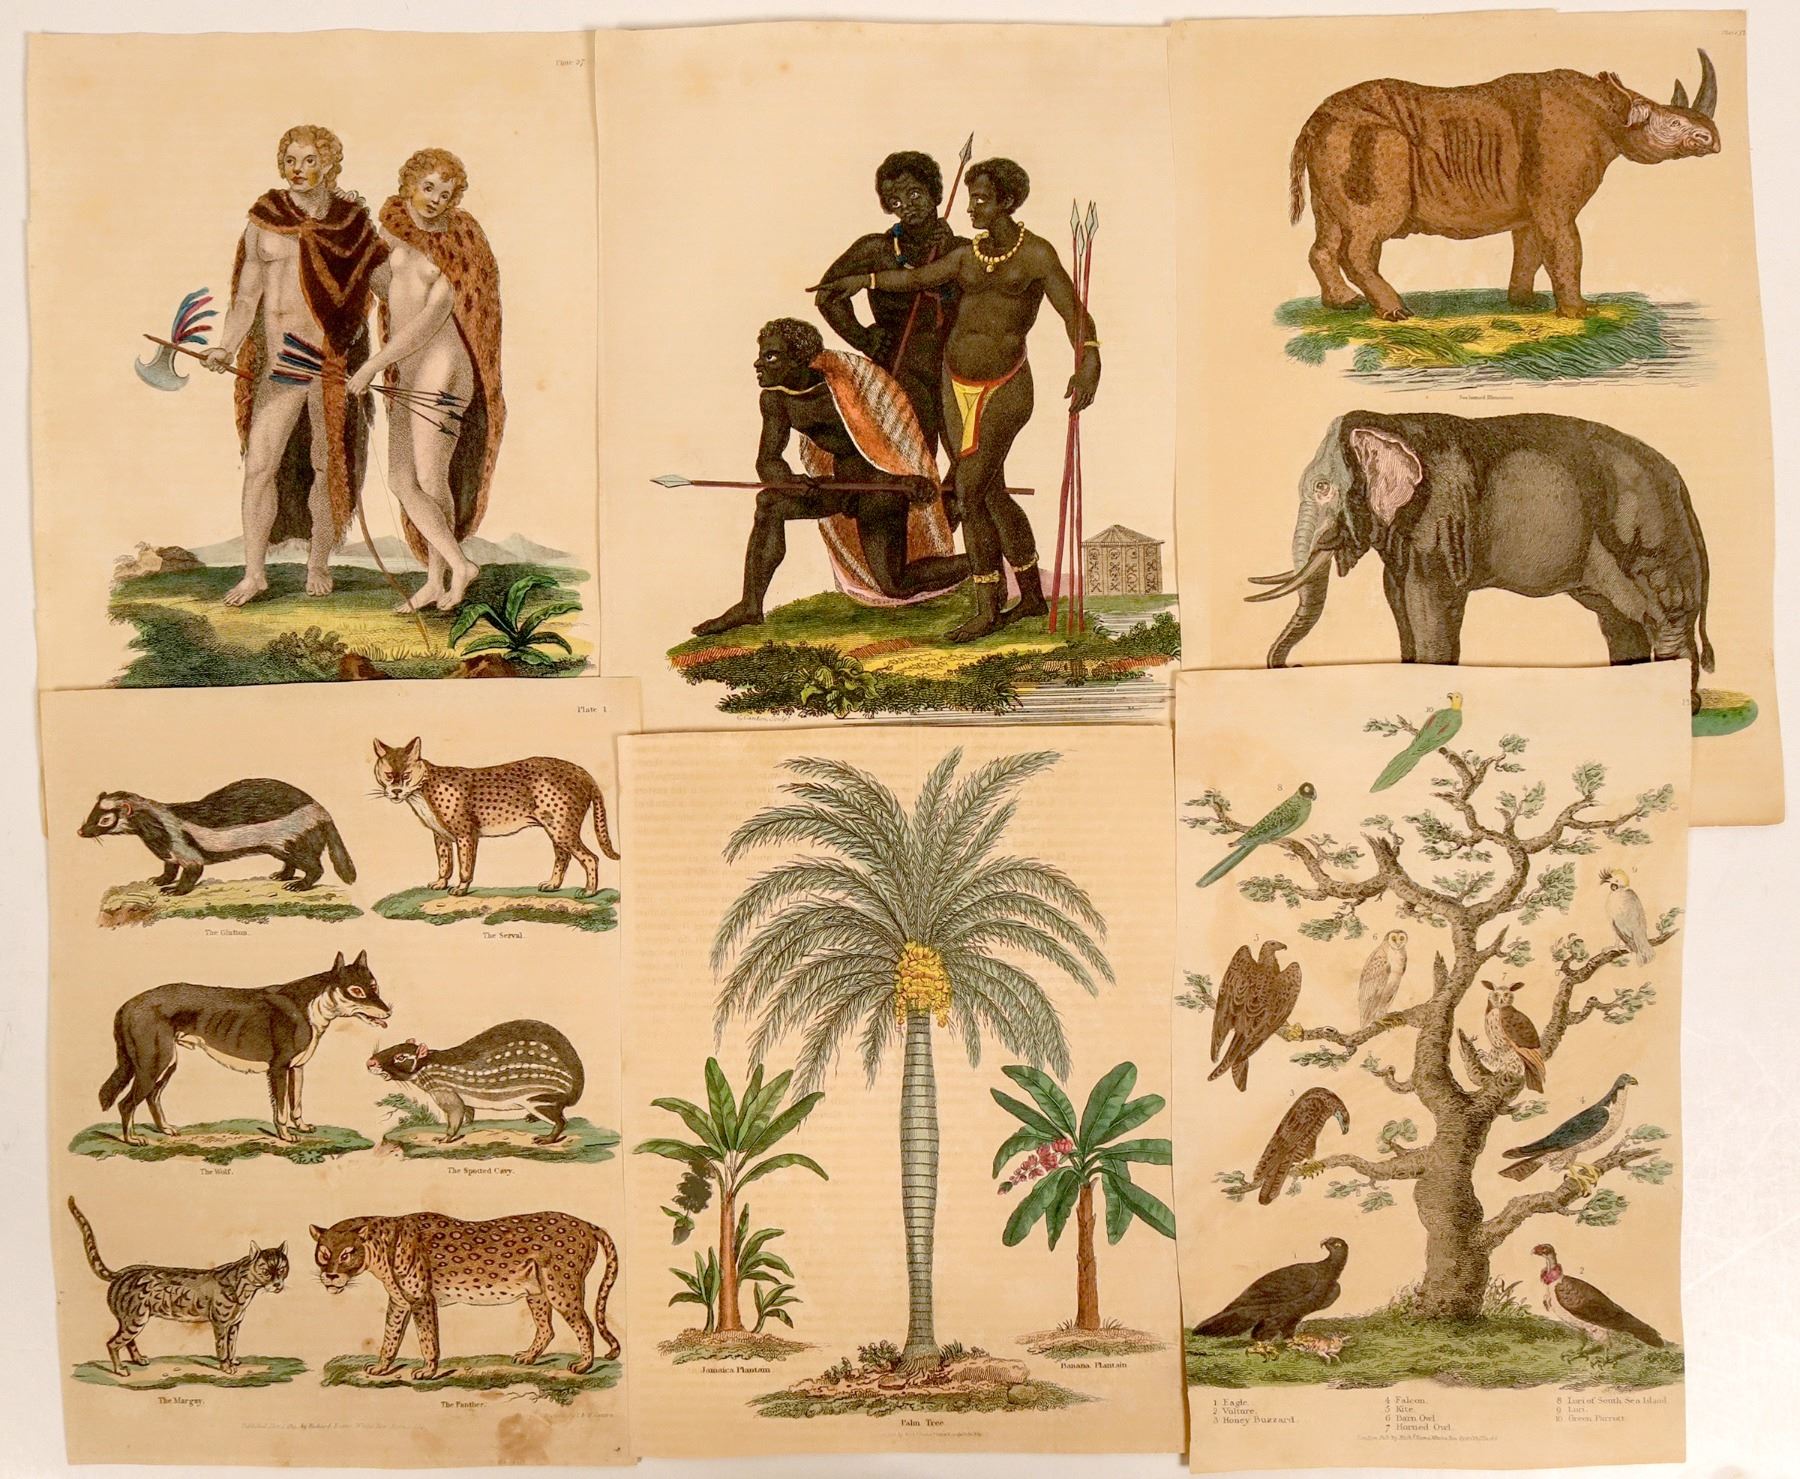 Plate 27
Two horned Rhinoceros
Plate 1
The Glutton.
The Serval.
The Wolf.
The Spotted Cavy.
The Marguy.
The Panther.
Jamaica Plantain
Banana Plantain
Palm Tree
10
8
9
5
6
7
3
4
1
2
1 Eagle.
2 Vulture.
3 Honey Buzzard.
4 Falcon.
5 Kite.
6 Barn Owl
7 Horned Owl.
8 Luri of South Sea Island
9 Luri.
10 Green Parrott